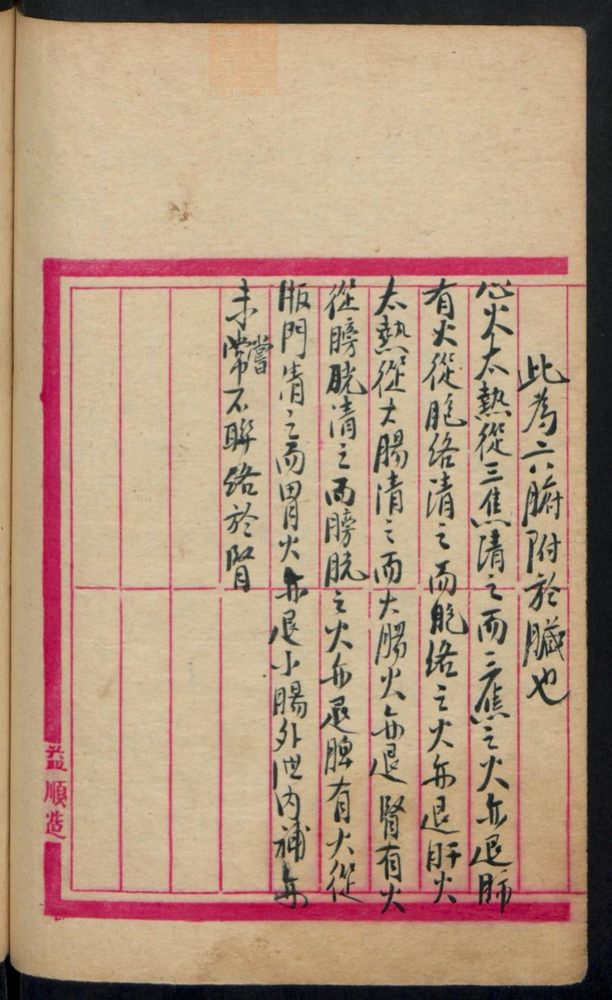 此為六腑附於臟也
心火太熱從三焦清之而三焦之火亦退肺
有火從胞絡清之而胞絡之火亦退肝火
太熱從大腸清之而大腸火亦退腎有火
從膀胱清之而膀胱之火亦退脾有火從
版門清之而胃火亦退小腸外泄内補亦
未常嘗不聯絡於腎
益順造